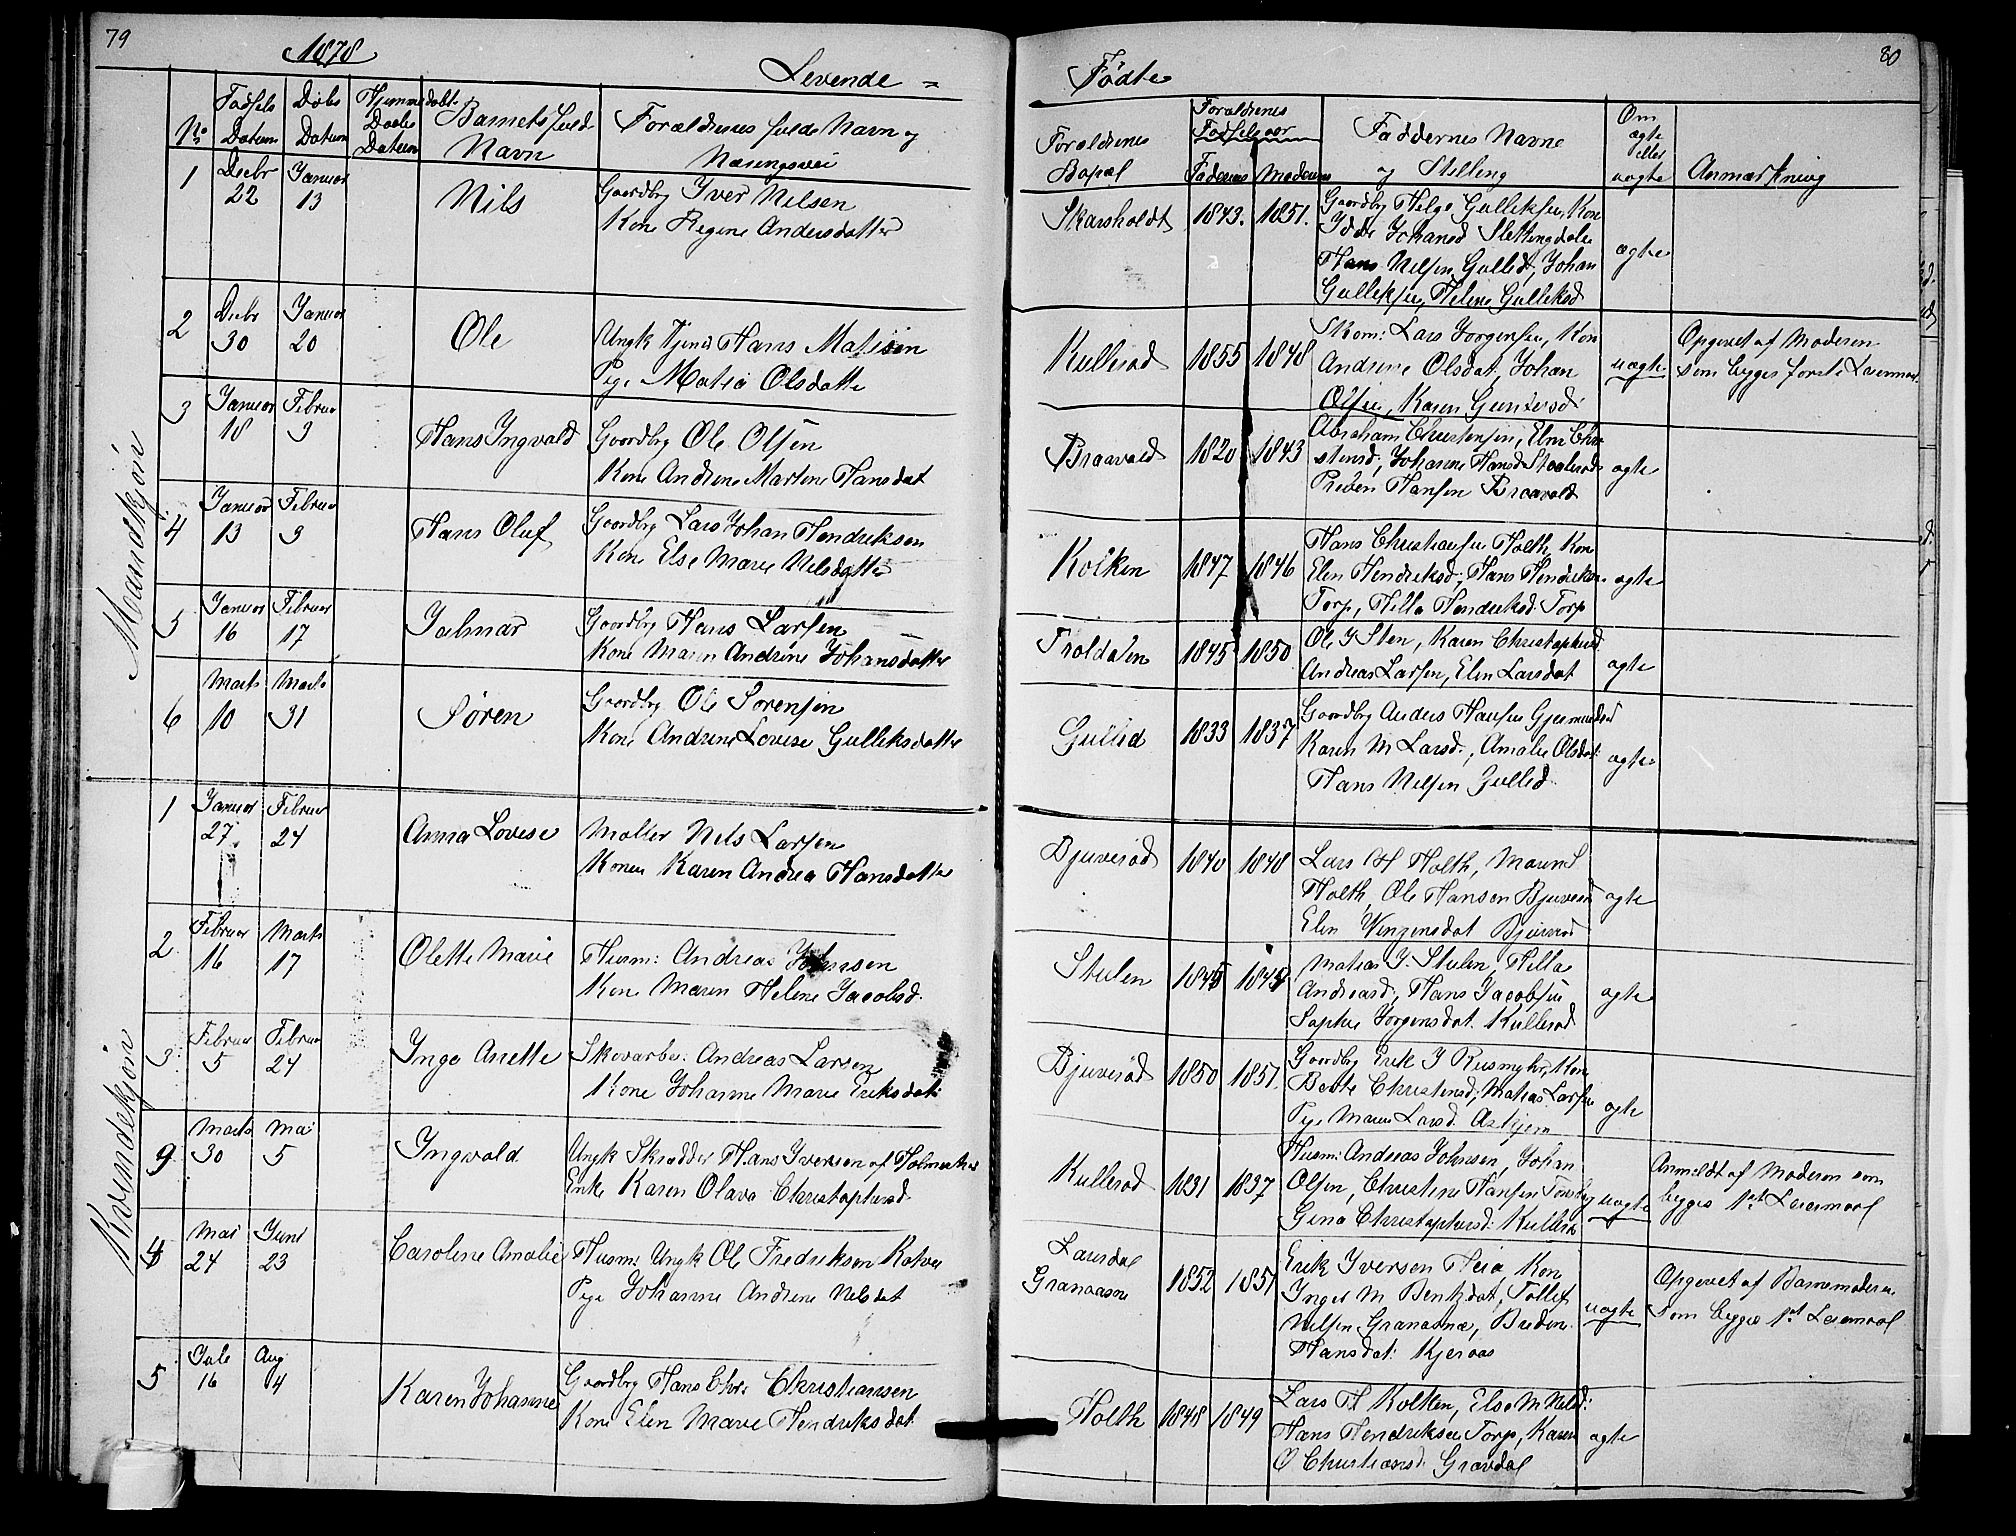 79
1878
Levende =
No
Fødsels Datum
Døbs Datum
Hjemmedøbt. Daabs Datum
Barnets fulde Navn
Forældrenes fulde Navn og Næringsvei
Mandkjøn
1 Decbr 22 Januar 13 Nils Gaardbr Iver Nilsen
Kone Regine Andersdatter
2 Decbr 30 Januar 20 Ole Ungk Tjener Hans
Pige Matia Olsdatter
3 Januar 18 Februar 3 Hans Ingvald Gaardbr Ole Olsen
Kone Andrine Martine Hansdat
4 Januar 13 Februar 3 Hans Oluf Gaardbr Lars Johan Hendriksen
Kone Else Marie Nilsdatter
5 Januar 16 Februar 17 Jalmar Gaardbr Hans Larsen
Kone Maren Andrine Johansdatter
6 Marts 10 Marts 31 Søren Gaardbr Ole Sorensen
Kone Andrine Lovise Gulliksdatter
Kvindekjøn
1 Januar 27 Februar 24 Anna Lovise Møller Nils Larsen
Konen Karen Andrea Hansdatter
2 Februar 16 Marts 17 Olette Marie Husm: Andreas Johnsen
Kone Maren Helene Jacobsd.
3 Februar 5 Februar 24 Inge Anette Skovarbei: Andreas Larsen
Kone Johanne Marie Eriksdat:
9 Marts 30 Mai 5 Ingvald Ungk Skrædder Hans Iversen af
Enke Karen Olava Christophersd.
4 Mai 24 Juni 23 Caroline Amalie Husm: Ungk Ole Fredriksen
Pige Johanne Andrine Nilsdat
5 Jule 16 Aug 4 Karen Johanne Gaardbr Hans Chr: Christiansen
Kone Elen Marie Hendriksdat.
80
Fødte
Forældrenes Bopæl
Forældrenes Fødselsaar
Faderens Moderens
Faddernes Navne og Stilling
Om ægte eller uægte
Anmærkning
Skarsholdt 1843. 1851. Gaardbr Helge Gulliksen, Kon
Johansd
Hans Nilsen Gullid, Johan
Gulliksen, Helene Gulliksd
ægte
Kullerød 1855 1848 Skom: Lars Jorgensen, Kon
Andrine Olsdat, Johan
Olsen, Karen Guntersd:
uægte
Opgivet af Moderen
som begges første Leiermaal
Braavold 1820 1843 Abraham Christensen, Elen Chri
stensd; Johanne Hansd
Preben Hansen Braavold
ægte
Kolken 1847 1846 Hans Christiansen Holth, Kon
Elen Hendriksd; Hans Hendriksen
Torp, Hella Hendriksd: Torp
ægte
Troldalen 1845 1850 Ole J Sten, Karen Christophersd
Andreas Larsen, Elen Larsdat
ægte
Gullid 1833 1837 Gaardbr Anders Hansen
Karen M Larsd., Amalie Olsdat:
Hans Nilsen Gullid.
ægte
Bjuverød 1840 1848 Lars H Holth, Maren S
Holth, Ole Hansen Bjuverød
Elen Bjuverød
ægte
Skulen 1845 Matias J. Skulen, Hella
Andreasd; Hans Jacobsen
Sophie Jorgensdat. Kullerød
ægte
Bjuverød 1850 1851. Gaardbr Erik J Kon
Berte Christensd; Matias Larsen
Pige Maren Larsd. Askjem
ægte
Kullerød 1831 1837 Husm: Andreas Johnsen, Johan
Olsen, Christine Hansen
Gina Christophersd: Kullerød
uægte
Anmeldt af Moderen som
begges 1ste Leiermaal
Laursdal
Granaasne 1852 1851 Erik Iversen Heia Kon
Inger M Bentsdat, Tollef
Nilsen Granasne, Bredine
Hansdat: Kjeraas
uægte
Opgivet af Barnemoderen
som begges 1st Leiermaal
Holth 1848 1849 Lars H Kolken, Else M Nilsd:
Hans Hendriksen Torp, Karen
O Christiansd: Gravdal
ægte